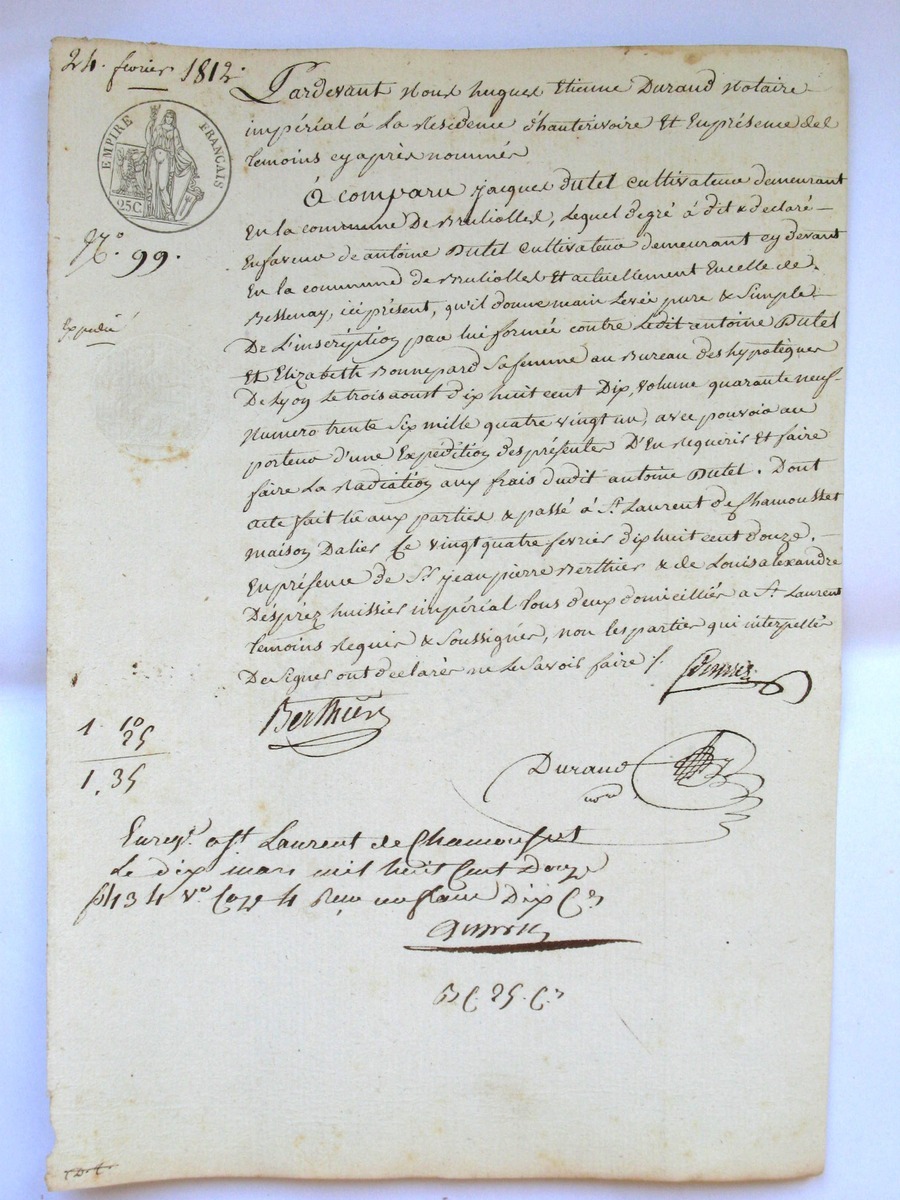 24. fevrier 1812.
EMPIRE FRANÇAIS
25C
N.° 99.
Expedié
Pardevant Nous hugues Etienne Durand Notaire
impérial à La Residence d'hauterivoire Et En présence des
temoins cy après nommés
à comparu jacques Dutel Cultivateur demeurant
En la commune De Brulioles, Lequel de gré à dit & declaré
En faveur de antoine Dutel Cultivateur demeurant cy devant
En la commune de Brulioles Et actuellement En celle de
Bessenay, ici présent, qu'il donne main Levée pure & Simple
De L'inscription par lui formée contre Ledit antoine Dutel
Et Elizabeth Bonnepard Sa femme au Bureau des hypotèques
De Lyon Le trois aoust dix huit cent Dix, Volume quarante neuf
Numero trente Six mille quatre vingt un, avec pouvoir au
porteur d'une Expédition des présentes D'En Requerir Et faire
faire La Radiation aux frais dudit antoine Dutel. Dont
acte fait lû aux parties & passé à St. Laurent de Chamousset
maison Dalier Le vingt quatre fevrier dix huit cent douze.
En présence de Sr. jean pierre Berthier & de Louis alexandre
Désprez huissier impérial tous deux domiciliés a St. Laurent
temoins Requis & Soussignés, non les parties qui interpellés
De Signer ont declarés ne Le Savoir faire /.
Berthier
Durand
nore
1. 10
25
1. 35
Enregt. a St. Laurent de Chamousset
Le dix mars mil huit Cent Douze
fo 134 Vo. Case 4 Reçu un franc Dix Cs
R C. 25. Cs